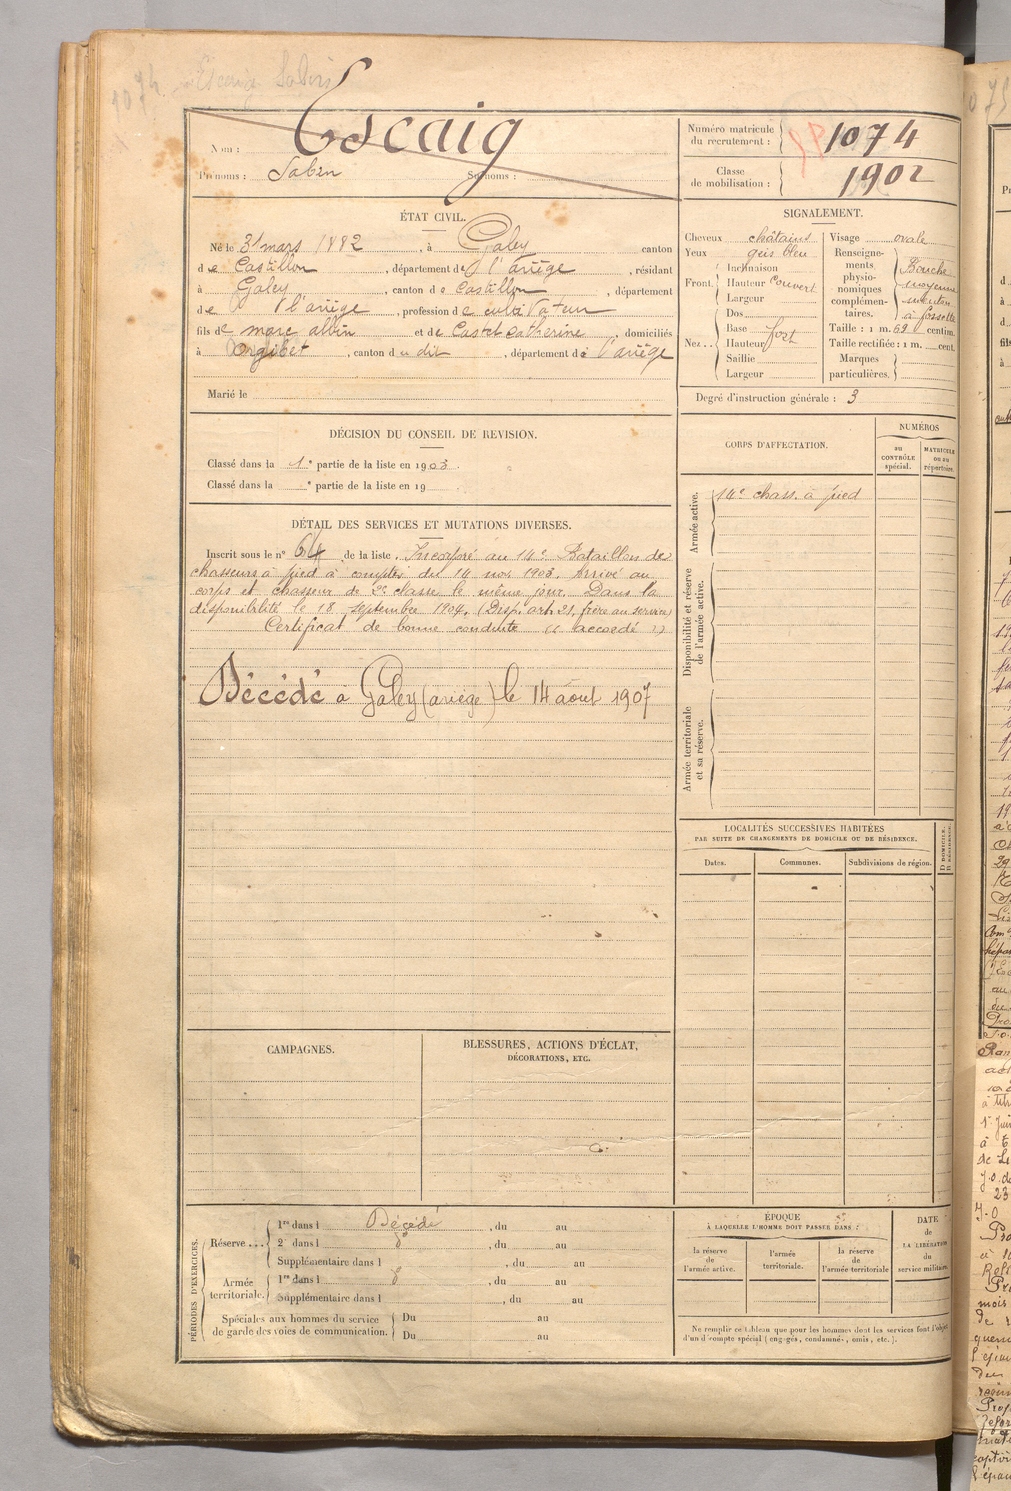 Nom : Escaig
Prénoms : Sabin Surnoms :
Numéro matricule du recrutement : 1074
Classe de mobilisation : 1902
ÉTAT CIVIL.
Né le 31 mars 1882, à Galey canton
de Castillon, département de l'ariège, résidant
à Galey, canton de Castillon, département
de l'ariège, profession de cultivateur
fils de marc albin et de Castet catherine, domiciliés
à Orgibet, canton du dit, département de l'ariège
Marié le
SIGNALEMENT.
Cheveux châtains
Yeux gris bleu
Front. Inclinaison
Hauteur Couvert
Largeur
Nez.. Dos
Base fort
Hauteur
Saillie
Largeur
Visage ovale
Renseignements physionomiques complémentaires. Bouche moyenne menton à fossette
Taille : 1 m. 69 centim.
Taille rectifiée : 1 m. cent.
Marques particulières.
Degré d'instruction générale : 3
DÉCISION DU CONSEIL DE REVISION.
Classé dans la 1e partie de la liste en 1903.
Classé dans la e partie de la liste en 19
DÉTAIL DES SERVICES ET MUTATIONS DIVERSES.
Inscrit sous le n° 64 de la liste. Incorporé au 14e Bataillon de
chasseurs à pied à compter du 14 nov. 1903. Arrivé au
corps et chasseur de 2e classe le même jour. Dans la
disponibilité le 18 septembre 1904. (Disp. art. 21, frère au service)
Certificat de bonne conduite « accordé »
Décédé à Galey (ariège) le 14 août 1907
CORPS D'AFFECTATION.
NUMÉROS
au CONTRÔLE spécial.
MATRICULE ou au répertoire.
Armée active. 14e chass. à pied
Disponibilité et réserve de l'armée active.
Armée territoriale et sa réserve.
LOCALITÉS SUCCESSIVES HABITÉES
PAR SUITE DE CHANGEMENTS DE DOMICILE OU DE RÉSIDENCE.
Dates. Communes. Subdivisions de région. D DOMICILE. R RÉSIDENCE.
CAMPAGNES.
BLESSURES, ACTIONS D'ÉCLAT,
DÉCORATIONS, ETC.
PÉRIODES D'EXERCICES.
Réserve ... 1re dans l Décédé, du au
2e dans l do, du au
Supplémentaire dans l , du au
Armée territoriale. 1re dans l do, du au
Supplémentaire dans l , du au
Spéciales aux hommes du service de garde des voies de communication. Du au
Du au
ÉPOQUE
À LAQUELLE L'HOMME DOIT PASSER DANS :
la réserve de l'armée active.
l'armée territoriale.
la réserve de l'armée territoriale
DATE de LA LIBÉRATION du service militaire.
Ne remplir ce tableau que pour les hommes dont les services font l'objet
d'un décompte spécial (engagés, condamnés, omis, etc.).